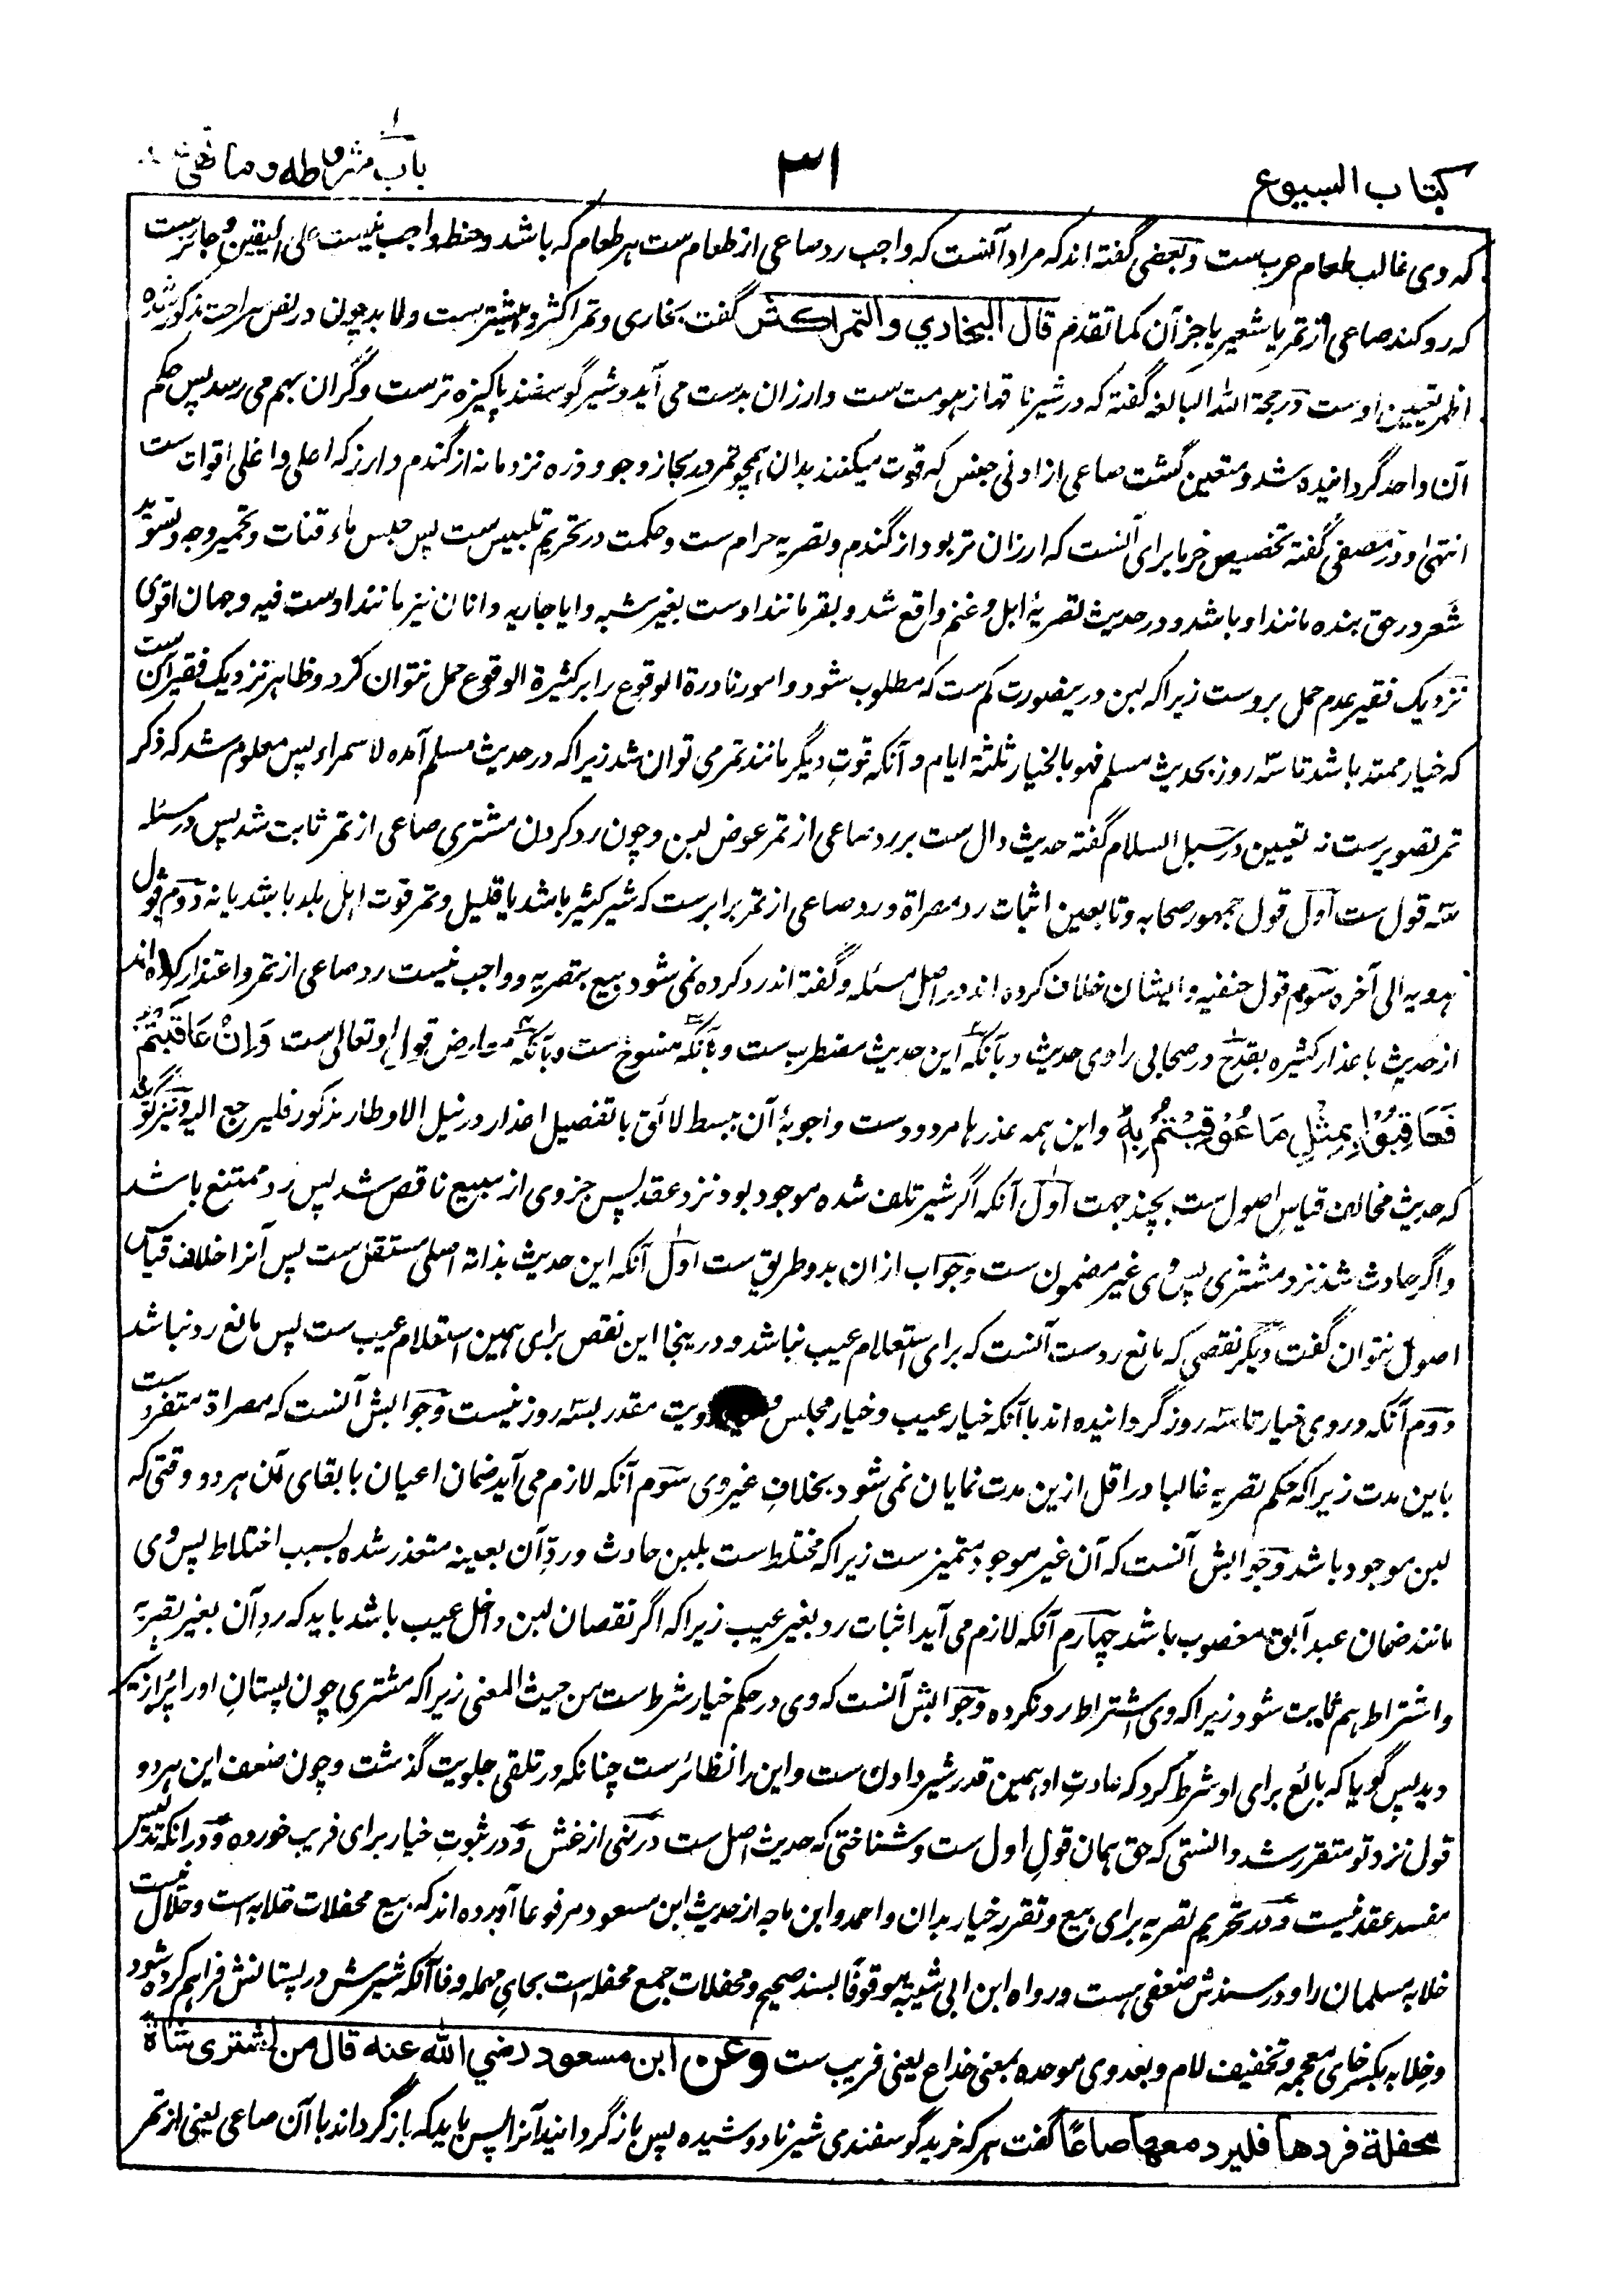 کتاب البیوع
۳۱
باب شروطه وما نهی
که وی غالب طعام عرب ست و بعضی گفته اند که مراد آنست که واجب رد صاعی از طعام ست هر طعام که باشد و حنطه واجب نیست علی الیقین و جائز ست
که رد کند صاعی از تمر یا شعیر یا جز آن کما تقدم قال البخاري والتمر اکثر گفت بخاری و تمر اکثر و بیشتر ست و لا بد چون در نص صراحت مذکور شده
اظهر تعیین اوست در حجة الله البالغه گفته که در شیر ناقه از هومت ست و ارزان بدست می آید و شیر گوسفند پاکیزه ترست و گران بهم می رسد پس حکم
آن واحد گردانیده شد و متعین گشت صاعی از ادنی جنس که قوت میکنند بدان همچو تمر در حجاز و جو و ذره نزد ما نه از گندم و ارز که اعلی و اغلی اقوات ست
انتهی و در مصفی گفته تخصیص خرما برای آنست که ارزان تر بود از گندم و تصریه حرام ست و حکمت در تحریم تلبیس ست پس حبس ماء قنات و تحمیر وجه و تسوید
شعر در حق بنده مانند او باشد و در حدیث تصریهٔ ابل و غنم واقع شد و بقر مانند اوست بغیر شبه و ایا جاریه و اتان نیز مانند اوست فیه وجهان اقوی
نزدیک فقیر عدم حمل بروست زیرا که لبن در ینصورت کم ست که مطلوب شود و امور نادرة الوقوع را بر کثیرة الوقوع حمل نتوان کرد و ظاهر نزدیک فقیر آن ست
که خیار ممتد باشد تا سه روز بحدیث مسلم فهو بالخیار ثلثة ایام و آنکه قوت دیگر مانند تمر می توان شد زیرا که در حدیث مسلم آمده لا سمراء پس معلوم شد که ذکر
تمر تصویر ست نه تعیین در سبل السلام گفته حدیث دال ست بر رد صاعی از تمر عوض لبن و چون رد کردن مشتری صاعی از تمر ثابت شد پس در مسئله
سه قول ست اول قول جمهور صحابه و تابعین اثبات رد مصراة و رد صاعی از تمر برابر ست که شیر کثیر باشد یا قلیل و تمر قوت اهل بلد باشد یا نه دوم قول
هدویه الی آخره سوم قول حنفیه و ایشان خلاف کرده اند در اصل مسئله و گفته اند رد کرده نمی شود بیع بتصریه و واجب نیست رد صاعی از تمر و اعتذار کرده اند
از حدیث با عذار کثیره بقدح در صحابی راوی حدیث و بآنکه این حدیث مضطرب ست و بآنکه منسوخ ست و بآنکه معارض قول او تعالی ست وَاِنْ عَاقَبْتُمْ
فَعَاقِبُوْا بِمِثْلِ مَا عُوْقِبْتُمْ بِهٖ و این همه عذرها مردود ست و اجوبهٔ آن ببسط لائق با تفصیل اعذار در نیل الاوطار مذکور فلیرجع الیه و نیز گفته
که حدیث مخالف قیاس اصول ست بچند جهت اول آنکه اگر شیر تلف شده موجود بود نزد عقد پس جزوی از مبیع ناقص شد پس رد ممتنع باشد
و اگر حادث شد نزد مشتری پس وی غیر مضمون ست و جواب ازان بدو طریق ست اول آنکه این حدیث بذاته اصلی مستقل ست پس آنرا خلاف قیاس
اصول نتوان گفت دیگر نقصی که مانع ردست آنست که برای استعلام عیب نباشد و درینجا این نقص برای همین استعلام عیب ست پس مانع رد نباشد
دوم آنکه در وی خیار تا سه روز گردانیده اند با آنکه خیار عیب و خیار مجلس و رویت مقدر بسه روز نیست و جوابش آنست که مصراة متفرد ست
باین مدت زیرا که حکم تصریه غالبا در اقل ازین مدت نمایان نمی شود بخلاف غیر وی سوم آنکه لازم می آید ضمان اعیان با بقای آن هر دو وقتی که
لبن موجود باشد و جوابش آنست که آن غیر موجود متمیز ست زیرا که مختلط ست بلبن حادث و رد آن بعینه متعذر شده بسبب اختلاط پس وی
مانند ضمان عبد آبق مغصوب باشد چهارم آنکه لازم می آید اثبات رد بغیر عیب زیرا که اگر نقصان لبن داخل عیب باشد باید که رد آن بغیر تصریه
و اشتراط هم ثابت شود زیرا که وی اشتراط رد نکرده و جوابش آنست که وی در حکم خیار شرط ست من حیث المعنی زیرا که مشتری چون پستان او را پر از شیر
دید پس گویا که بائع برای او شرط کرد که عادت او همین قدر شیر دادن ست و این را نظائر ست چنانکه در تلقی جلوبت گذشت و چون ضعف این هر دو
قول نزد تو متقرر شد دانستی که حق همان قول اول ست و شناختی که حدیث اصل ست در نهی از غش و در ثبوت خیار برای فریب خورده و در آنکه تدلیس
مفسد عقد نیست و در تحریم تصریه برای بیع و تقریر خیار بدان و احمد و ابن ماجه از حدیث ابن مسعود مرفوعا آورده اند که بیع محفلات خلابه است و حلال نیست
خلابه مسلمان را و در سندش ضعفی هست و رواه ابن ابی شیبه موقوفا بسند صحیح و محفلات جمع محفله است بحای مهمله و فا آنکه شیرش در پستانش فراهم کرده شود
و خلابه بکسر خای معجمه و تخفیف لام و بعد وی موحده بمعنی خداع یعنی فریب ست وعن ابن مسعود رضي الله عنه قال من اشتری شاة
محفلة فردها فلیرد معها صاعًا گفت هر که خرید گوسفندی شیر نا دوشیده پس باز گردانید آنرا پس باید که باز گرداند با آن صاعی یعنی از تمر